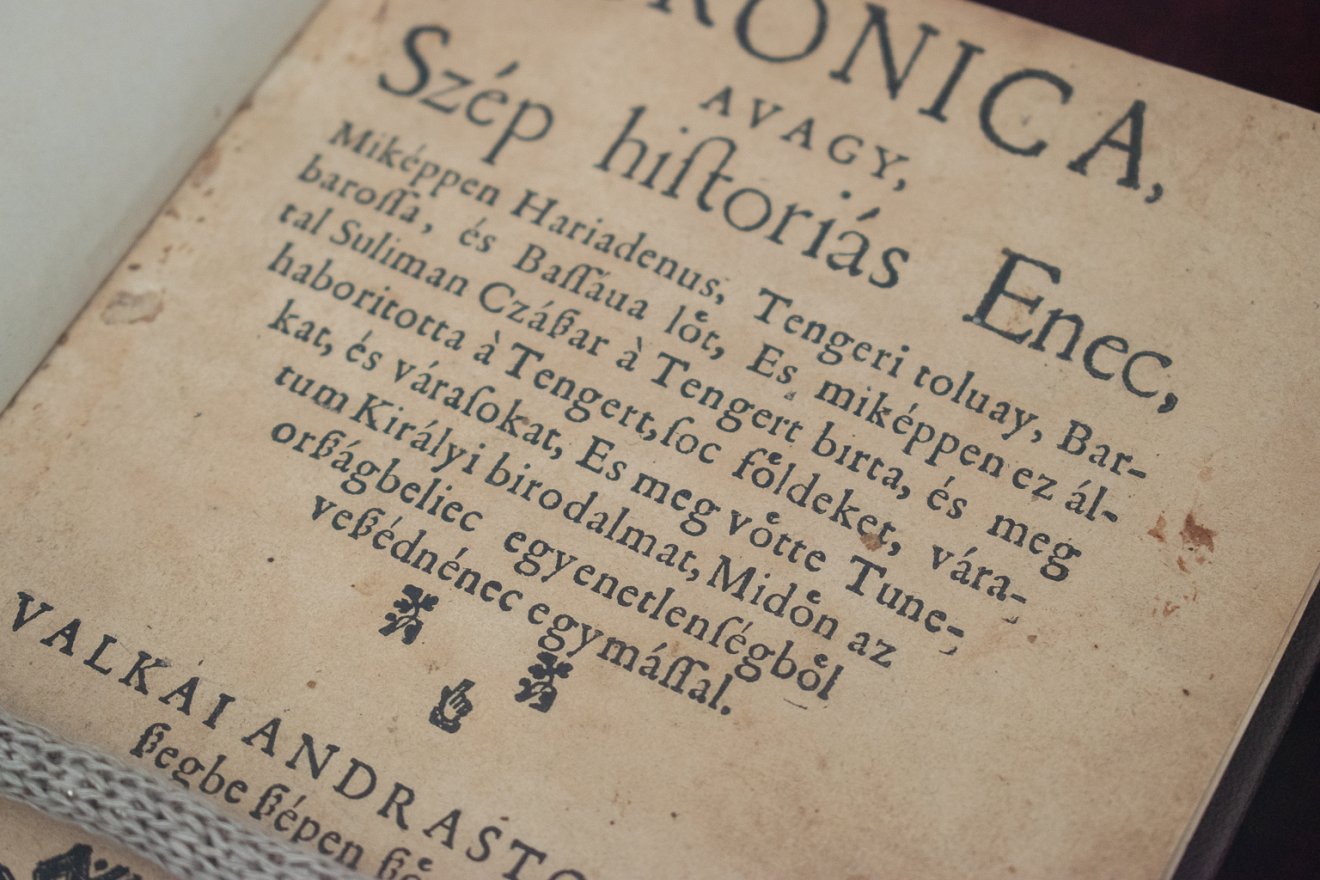 RONICA,
AVAGY,
Szép hiſtoriás Enec,
Miképpen Hariadenus, Tengeri toluay, Bar-
baroſſa, és Baſſáua lo̊t, Es miképpen ez ál-
tal Suliman Czáßar à Tengert birta, és meg
haboritotta à Tengert, ſoc fo̊ldeket, vára-
kat, és váraſokat, Es meg vo̊tte Tune-
tum Királyi birodalmat, Mido̊n az
orßágbeliec egyenetlenſégbo̊l
veßédnénec egymáſſal.
VALKAI ANDRASTO
ßegbe ßépen